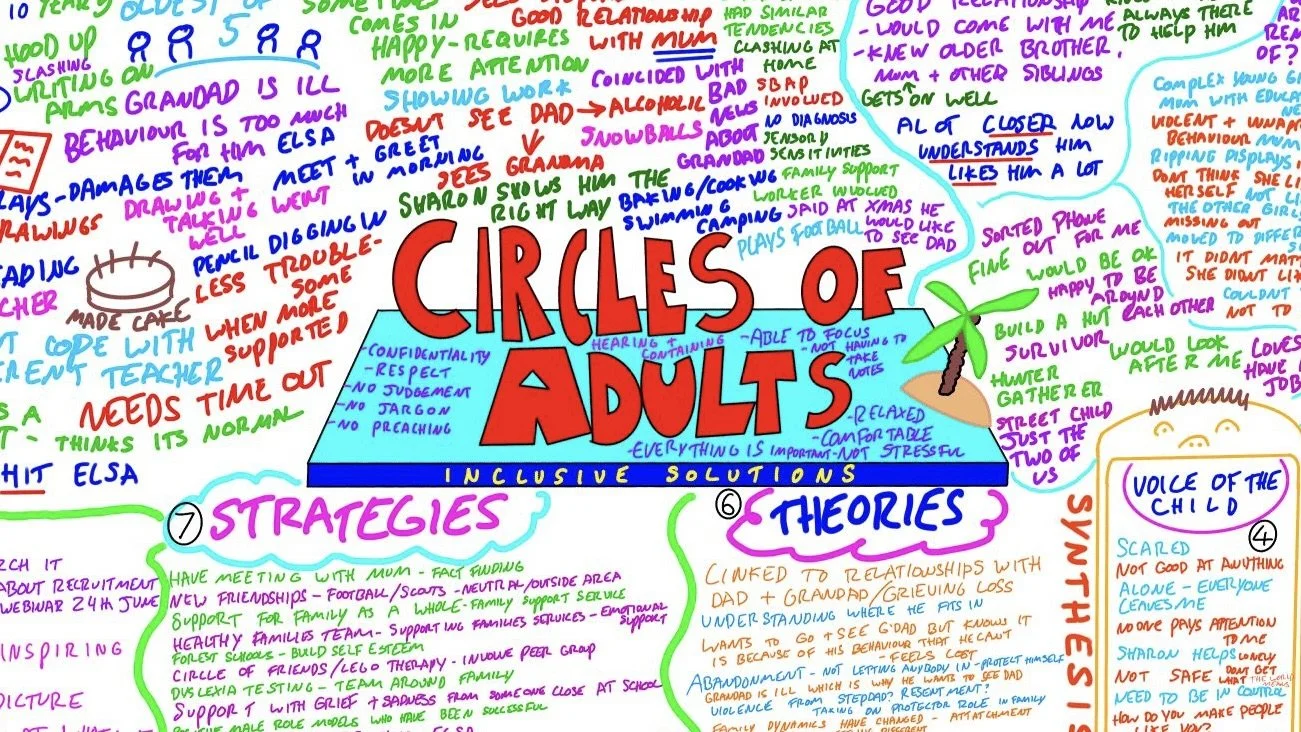 10 YEARS OLDEST OF 5
HOOD UP
SLASHING
WRITING ON
ARMS
GRANDAD IS ILL
BEHAVIOUR IS TOO MUCH
FOR HIM
ELSA
MEET + GREET
IN MORNING
LAYS-DAMAGES THEM
DRAWING +
TALKING WENT
WELL
RAWINGS
PENCIL DIGGING IN
LESS TROUBLE-
SOME
WHEN MORE
SUPPORTED
MADE CAKE
CHER
T COPE WITH
RENT TEACHER
NEEDS TIME OUT
S A
T - THINKS ITS NORMAL
HIT ELSA
COMES IN
HAPPY-REQUIRES
MORE ATTENTION
SHOWING WORK
GOOD RELATIONSHIP
WITH MUM
DOESNT SEE DAD → ALCOHOLIC
SNOWBALLS
SEES GRANDMA
COINCIDED WITH
BAD
NEWS
ABOUT
GRANDAD
SHARON SHOWS HIM THE
RIGHT WAY
BAKING/COOKING
SWIMMING
CAMPING
PLAYS FOOTBALL
HAD SIMILAR
TENDENCIES
CLASHING AT
HOME
SBAP
INVOLVED
NO DIAGNOSIS
SENSORY
SENSITIVITIES
FAMILY SUPPORT
WORKER INVOLVED
SAID AT XMAS HE
WOULD LIKE
TO SEE DAD
GOOD RELATIONSHIP
- WOULD COME WITH ME
- KNEW OLDER BROTHER,
MUM + OTHER SIBLINGS
GETS ON WELL
ALWAYS THERE
TO HELP HIM
A LOT CLOSER NOW
UNDERSTANDS HIM
LIKES HIM A LOT
OF?
COMPLEX YOUNG
MUM WITH
VIOLENT +
BEHAVIOUR
RIPPING DISPLAYS
DONT THINK SHE
HERSELF
THE OTHER
MISSING OUT
MOVED TO
IT DIDNT
SHE DIDNT
COULDNT
NOT TO
SORTED PHONE
OUT FOR ME
FINE
WOULD BE OK
HAPPY TO BE
AROUND
EACH OTHER
BUILD A HUT
SURVIVOR
WOULD LOOK
AFTER ME
LOVES
HAVE
JOB
HUNTER
GATHERER
STREET CHILD
JUST THE
TWO OF
US
CIRCLES OF
ADULTS
-CONFIDENTIALITY
-RESPECT
-NO JUDGEMENT
-NO JARGON
-NO PREACHING
HEARING +
CONTAINING
-ABLE TO FOCUS
-NOT HAVING TO
TAKE
NOTES
-RELAXED
-COMFORTABLE
-EVERYTHING IS IMPORTANT-NOT STRESSFUL
INCLUSIVE SOLUTIONS
RCH IT
ABOUT RECRUITMENT
WEBINAR 24TH JUNE
INSPIRING
7 STRATEGIES
HAVE MEETING WITH MUM - FACT FINDING
NEW FRIENDSHIPS - FOOTBALL/SCOUTS - NEUTRAL/OUTSIDE AREA
SUPPORT FOR FAMILY AS A WHOLE-FAMILY SUPPORT SERVICE
HEALTHY FAMILIES TEAM- SUPPORTING FAMILIES SERVICES - EMOTIONAL
SUPPORT
FOREST SCHOOLS - BUILD SELF ESTEEM
CIRCLE OF FRIENDS/LEGO THERAPY - INVOLVE PEER GROUP
DYSLEXIA TESTING - TEAM AROUND FAMILY
SUPPORT WITH GRIEF + SADNESS FROM SOMEONE CLOSE AT SCHOOL
MALE ROLE MODELS WHO HAVE BEEN SUCCESSFUL
6 THEORIES
LINKED TO RELATIONSHIPS WITH
DAD + GRANDAD/GRIEVING LOSS
UNDERSTANDING WHERE HE FITS IN
WANTS TO GO + SEE G'DAD BUT KNOWS IT
IS BECAUSE OF HIS BEHAVIOUR THAT HE CAN'T
- FEELS LOST
ABANDONMENT - NOT LETTING ANYBODY IN - PROTECT HIMSELF
GRANDAD IS ILL WHICH IS WHY HE WANTS TO SEE DAD
VIOLENCE FROM STEPDAD? RESENTMENT?
TAKING ON PROTECTOR ROLE IN FAMILY
FAMILY DYNAMICS HAVE CHANGED - ATTACHMENT
SYNTHESIS
VOICE OF THE
CHILD
4
SCARED
NOT GOOD AT ANYTHING
ALONE - EVERYONE
LEAVES ME
NO ONE PAYS ATTENTION
TO ME
SHARON HELPS
LONELY
NOT SAFE
DONT GET
WHAT THE WORLD
MEANS
NEED TO BE IN CONTROL
HOW DO YOU MAKE PEOPLE
LIKE YOU?